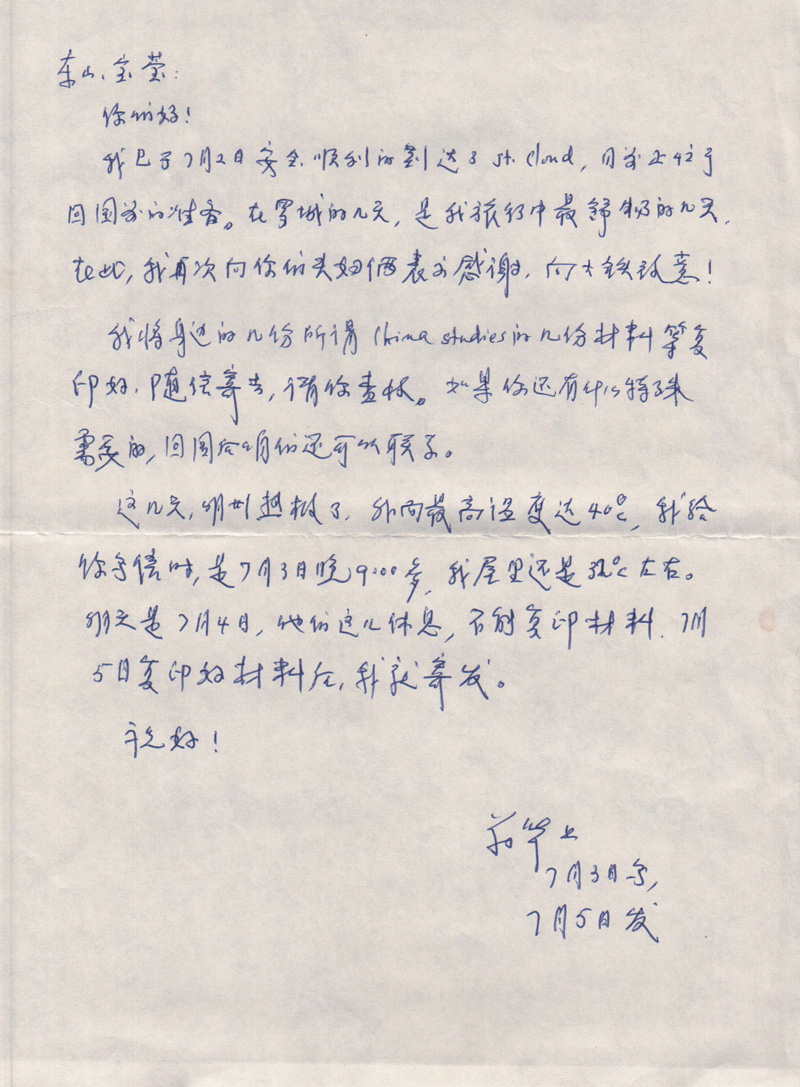 东山、宝莹:
你们好!
我已于7月2日安全、顺利的到达了 St. Cloud, 目前正在
回国前的准备。在罗城的几天, 是我旅行中最舒畅的几天,
在此, 我再次向你们夫妇俩表示感谢, 向大铁致意!
我将身边的几份所谓 China studies 的几份材料等复
印好, 随信寄去, 请你查收。如果你还有什么特殊
需要的, 回国后 月份还可以联系。
这几天, 明州热极了, 外面最高温度达40℃, 我给
你写信时, 是7月3日晚9:00多, 我屋里还是 ℃左右。
明天是7月4日, 他们这儿休息, 不能复印材料. 7月
5日复印好材料后, 我就寄发。
祝好!
华上
7月3日写,
7月5日发